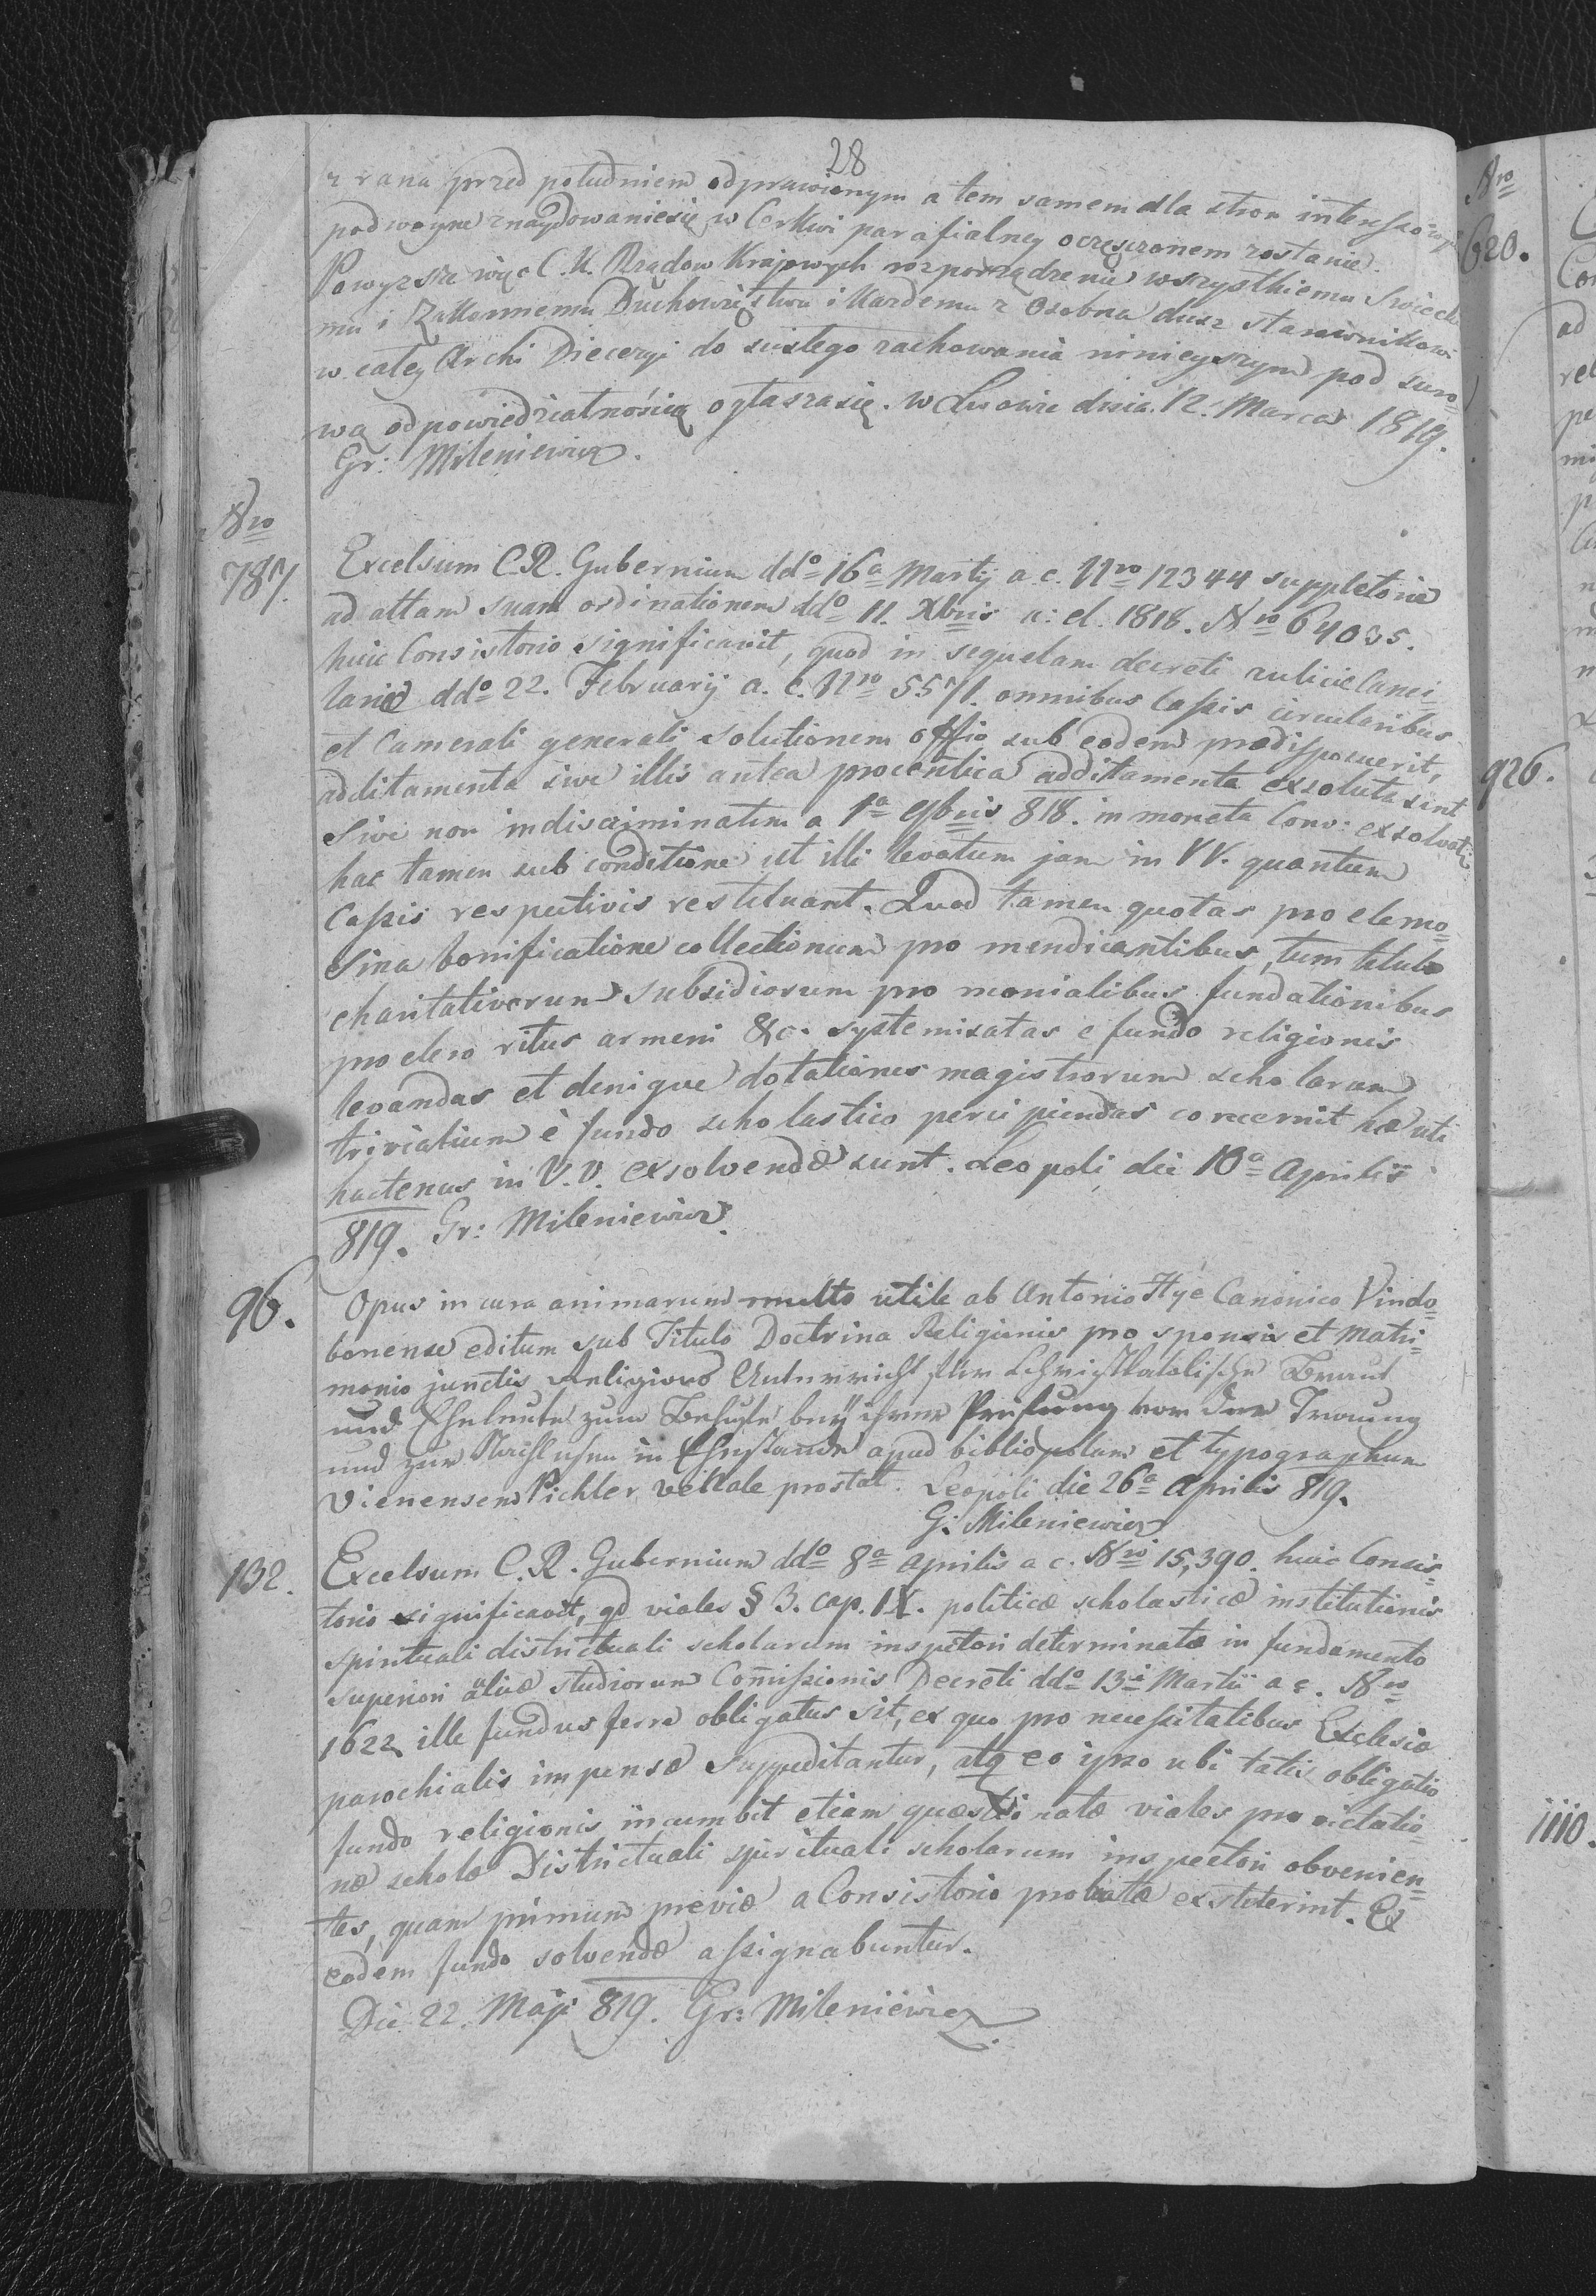 28
z rana przed południem odprawionym a tem samem dla stron
podwoyne znaydowaniesię w Cerkwi parafialney oczęszczonem zostanie.
Powyzsze więc C. K. Rządow Krajowych rozporządzenie wszystkiemu Swieck
mu i Zakonnemu Duchowieństwu i Kazdemu z Osobna dusz starownikowi
w całey Archi Diecezyi do scisłego zachowania ninieyszym pod suro=
wą odpowiedzialnością ogłaszasię. w Lwowie dnia 12. Marca 1819.
Gr: Mileniewicz.
Nro
787.
Excelsum C.R. Gubernium ddo 16a Martij a c. Nro 12344 suppletorie
ad attam suam ordinationem ddo 11. Xbris a: el. 1818. Nro 64035.
huic Consistorio significavit, quod in sequelam decreti aulicae Cancel=
lariae ddo 22. Februarij a. c. Nro 5571. omnibus Cassis circularibus
et Camerali generali solutionem offio sub eodem praedisposuerit,
additamenta sive illis antea procentica additamenta exsoluta sint
sive non indiscriminatim a 1a 9bris 818. in moneta Conv: exsolvati
hac tamen sub conditione ut illi levatum jam in VV. quantum
Cassis respectivis restituant. Quod tamen quotas pro elemo=
sina bonificatione collectionum pro mendicantibus, tum titulo
charitativorum subsidiorum pro monialibus fundationibus
pro clero ritus armeni &c. systemisatas e fundo religionis
levandas et denique dotationes magistrorum scholarum
trivialium è fundo scholastico percipiendas concernit hae uti
hactenus in V. V. exsolvendae sunt. Leopoli die 10a Aprilis
819. Gr: Mileniewicz.
96.
Opus in cura animarum multo utile ab Antonio Hye Canonico Vindo=
bonense editum sub Titulo Doctrina Religionis pro sponsis et Matri=
monio junctis Religions Unterricht für Christkatolische Braut
und Eheleute zum Behufe bey ihrer Prüfung vor der Trauung
und zum Nachlesen in Ehestande apud bibliopolam et typographum
Vienensem Pichler venale prostat. Leopoli die 26a Aprilis 819.
G: Mileniewicz
132.
Excelsum C. R. Gubernium ddo 8a Aprilis a c. Nro 15,390. huic Consis=
torio significavit, qd viales § 3. cap. IX. politicae scholasticae institutionis
spirituali districtuali scholarum inspetori determinatae in fundamento
superiori aulicae studiorum Comissionis Decreti ddo 13i Martii a c. Nro
1622 ille fundus ferre obligatus sit, ex quo pro necessitatibus Ecclesiae
parochialis impensae suppeditantur, atq eo ipso ubi talis obligatio
fundo religionis incumbit etiam quaestionatae viales pro
nae scholae Districtuali spirituali scholarum inspectori obvenien=
tes, quam primum previae a Consistorio probatae exstiterint. Ex
eodem fundo solvendae assignabuntur.
Die 22. Maji 819. Gr: Mileniewicz
Nro
620.
926.
1110.